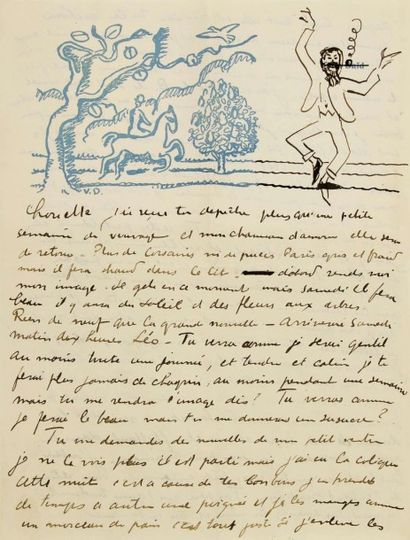 R. V. D.
Chouette j'ai reçu ta depêche plus qu'une petite
semaine de veuvage et mon chameau d'amour elle sera
de retour. Plus de Corsaires ni de puces Paris gris et froid
mais il fera chaud dans le lit. d'abord rends moi
mon image. Je gele en ce moment mais samedi il fera
beau il y aura du soleil et des fleurs aux arbres.
Rien de neuf que la grande nouvelle - Arriverai samedi
matin dix heures Léo - Tu verras comme je serai gentil
au moins toute une journée, et tendre et calin je te
ferai plus jamais de chagrin, au moins pendant une semaine
mais tu me rendra l'image dis? Tu verras comme
je ferai le beau mais tu me donneras un susucre?
Tu me demandes des nouvelles de mon petit ventre
je ne le vois plus il est parti mais j'ai eu la colique
cette nuit c'est a cause de tes bonbons j'en prends
de temps a autre une poignée et je les manges comme
un morceau de pain c'est tout juste si j'enleve les